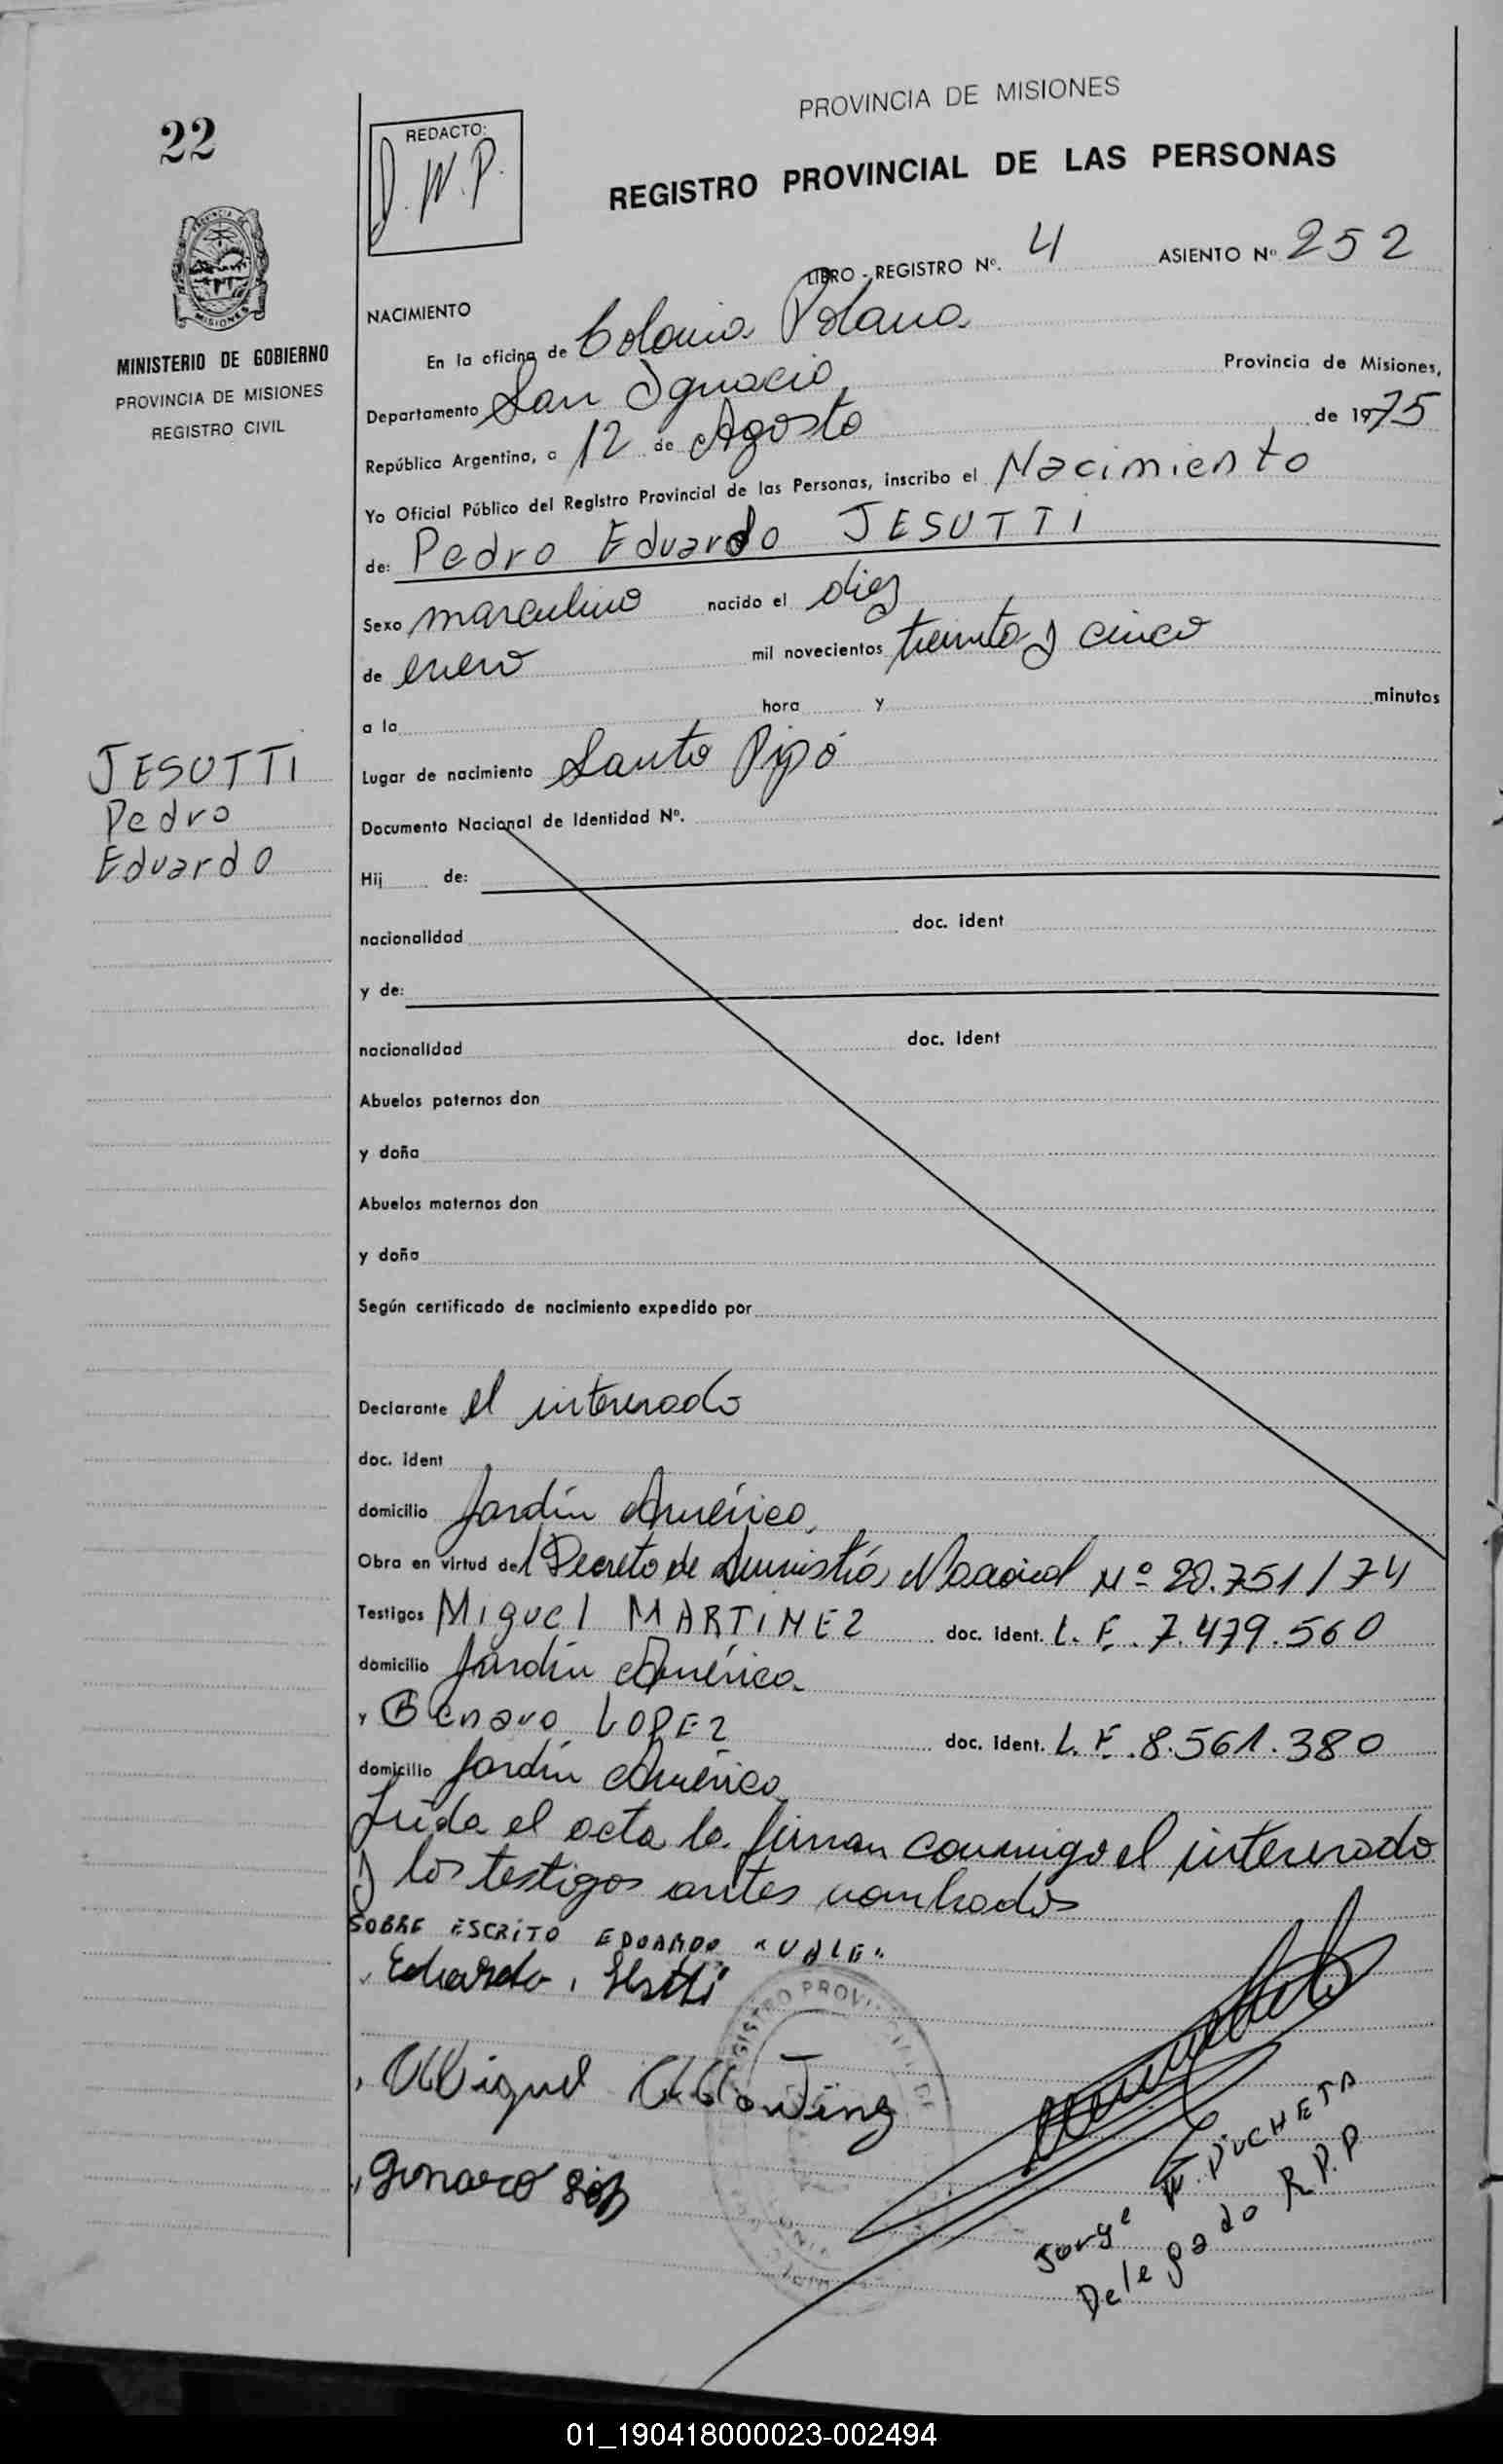 22
REDACTO:
J. W. P.
PROVINCIA DE MISIONES
REGISTRO PROVINCIAL DE LAS PERSONAS
LIBRO - REGISTRO Nº. 4 ASIENTO Nº 252
MINISTERIO DE GOBIERNO
PROVINCIA DE MISIONES
REGISTRO CIVIL
NACIMIENTO
En la oficina de Colonia Polana
Departamento San Ignacio, Provincia de Misiones,
República Argentina, a 12 de Agosto de 1975
Yo Oficial Público del Registro Provincial de las Personas, inscribo el Nacimiento
de: Pedro Eduardo JESUTTI
Sexo masculino nacido el diez
de enero mil novecientos treinta y cinco
a la hora y minutos
JESUTTI
Pedro
Eduardo
Lugar de nacimiento Santo Pipó
Documento Nacional de Identidad Nº.
Hij de:
nacionalidad doc. ident
y de:
nacionalidad doc. ident
Abuelos paternos don
y doña
Abuelos maternos don
y doña
Según certificado de nacimiento expedido por
Declarante el interesado
doc. ident
domicilio Jardín América,
Obra en virtud del Decreto de Amnistía Nacional Nº 20.751/74
Testigos Miguel MARTINEZ doc. ident. L. E. 7.479.560
domicilio Jardín América
y Genaro LOPEZ doc. ident. L. E. 8.561.380
domicilio Jardín América
Leida el acta la firman conmigo el interesado
y los testigos antes nombrados
SOBRE ESCRITO EDUARDO "VALE"
Eduardo
Miguel Martinez
Genaro
Jorge W. PUCHETA
Delegado R.P.P
01_190418000023-002494